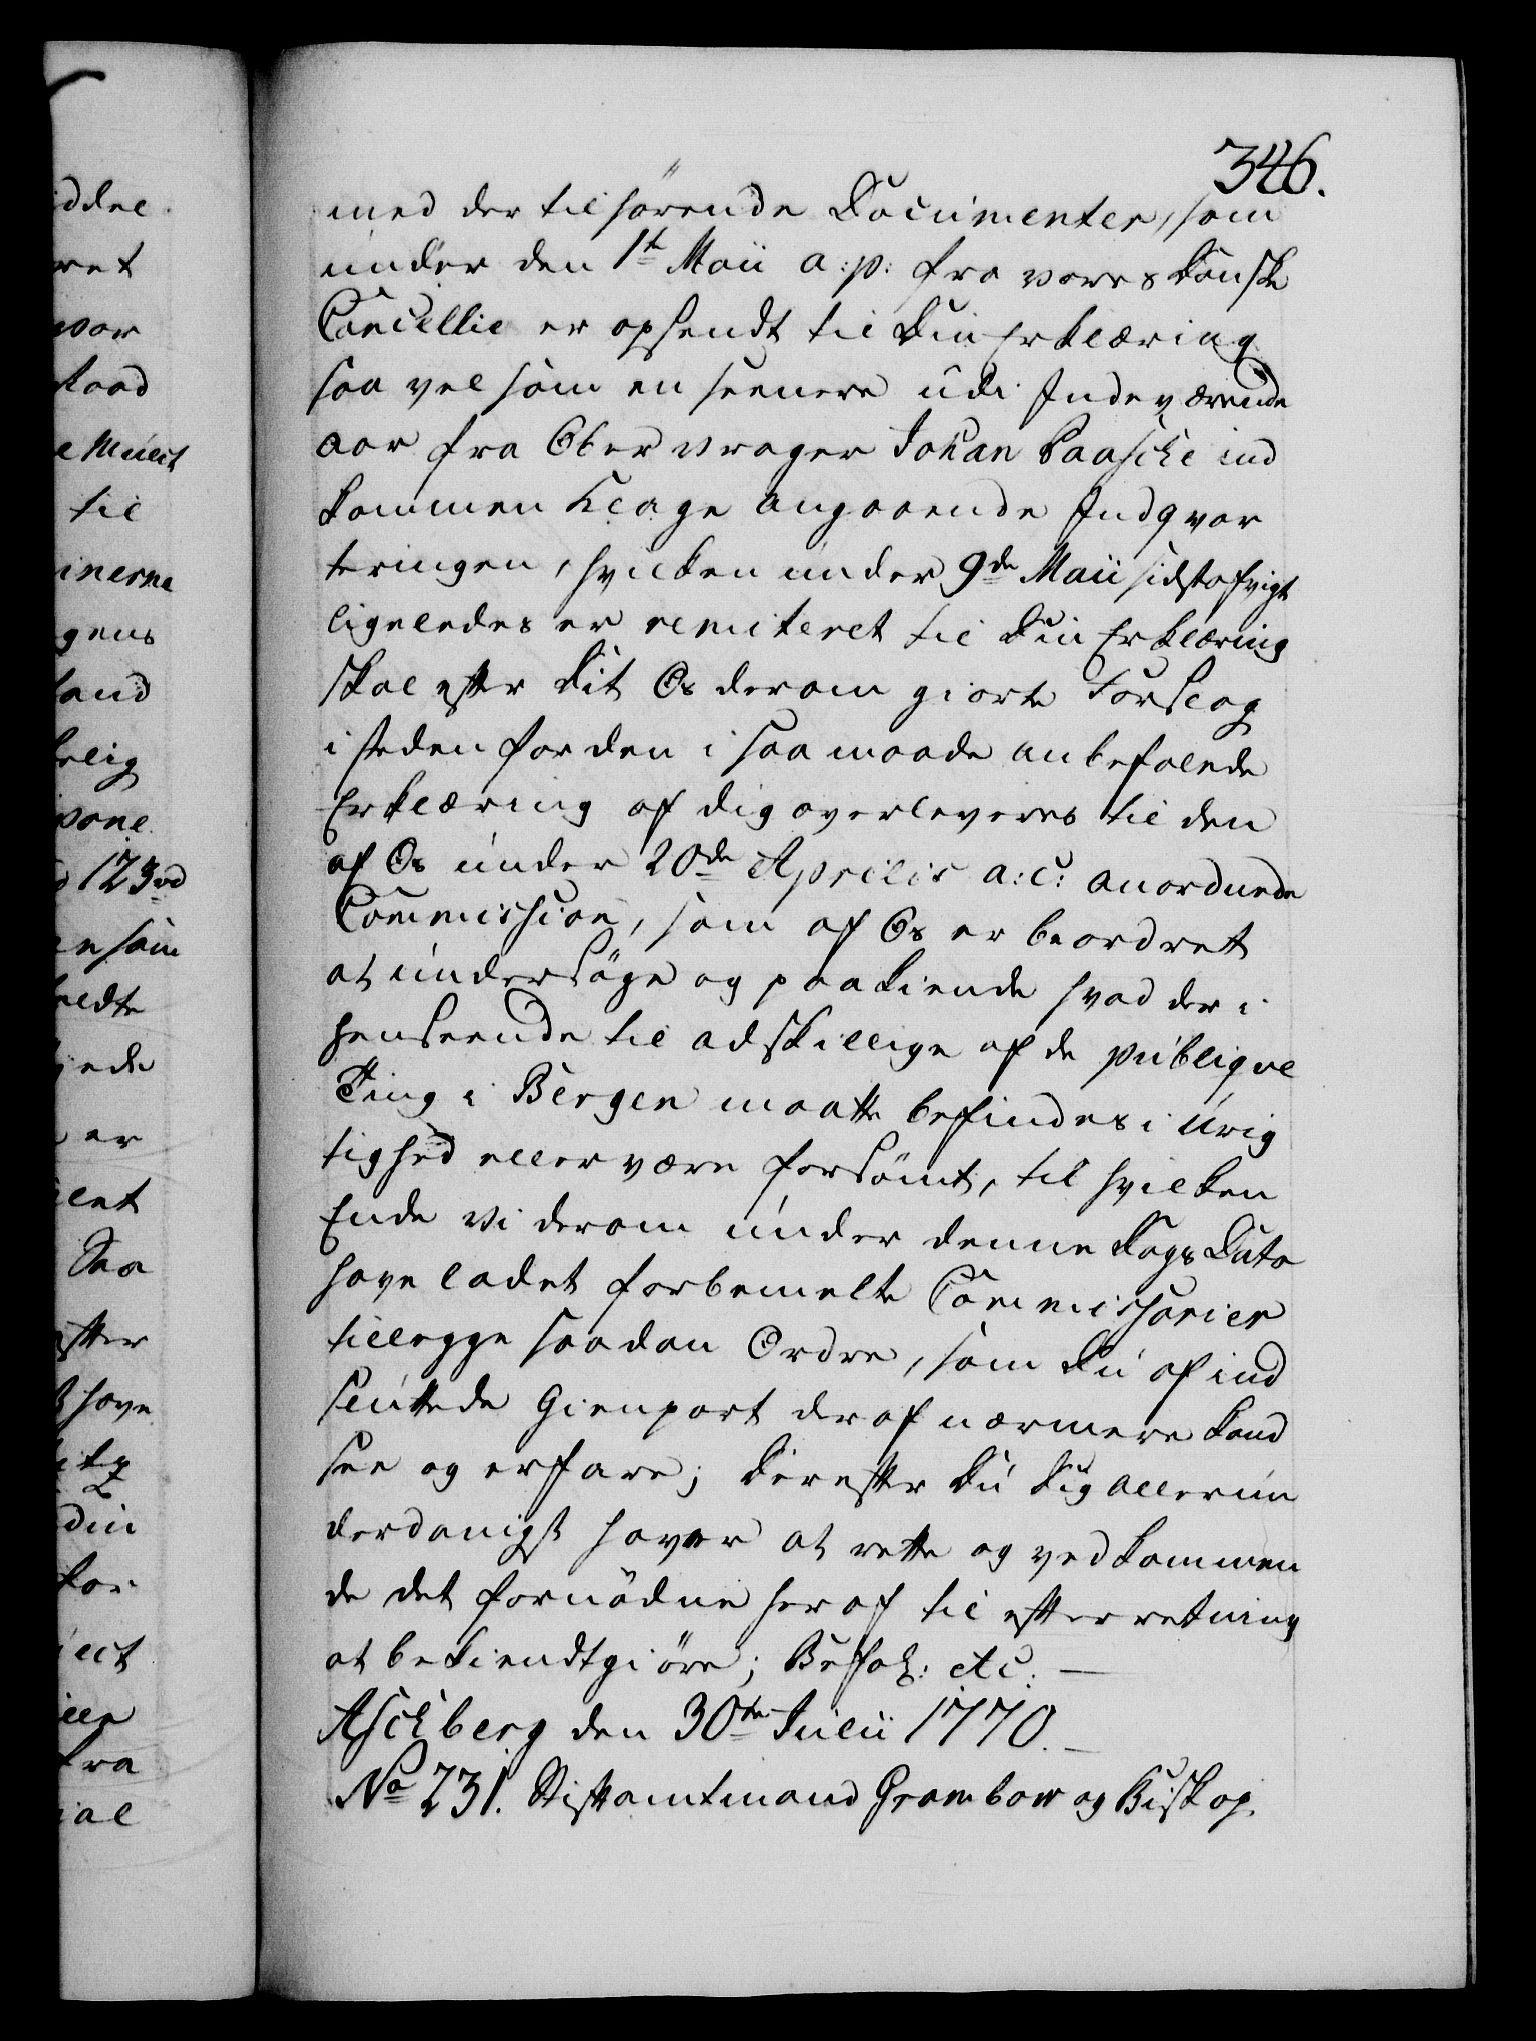 346.
med der til hörende Documenter, som
under den 1te Maii a: p: fra vores Danske
Cancellie er opsendt til Din Erklæring
saa vel som en seenere udi Indeværende
aar fra Oberwrager Johan Paasche ind
kommen Klage angaaende Indqvar
teringen, hvilken under 9de Maii sidstafvigt
ligeledes er remiteret til Din Erklæring
skal efter Dit Os derom giorte Forslag
i steden for den i saa maade anbefalede
Erklæring af dig overleveres til den
af Os under 20de Aprilis a: c: anordnede
Commission, som af Os er beordret
at undersöge og paakiende hvad der i
henseende til adskillige af de publiqve
Ting i Bergen maatte befindes i Urig
tighed eller være forsömt, til hvilken
Ende vi derom under denne Dags Dato
have ladet forbemelte Commissarier
tillegge saadan Ordre, som Du af ind
sluttede Gienpart deraf nærmere kand
see og erfare; Derefter Du Dig allerun
derdanigst haver at rette og vedkommen
de det fornödne heraf til efterretning
at bekiendtgiöre; Befal: etc: —
Aschberg den 30te Julii 1770. —
No 231. Stiftamtmand Grambow og Biskop
iddel
ret
til
inerne
gens
land
123
som
er
Saa
efter
have
din
fra